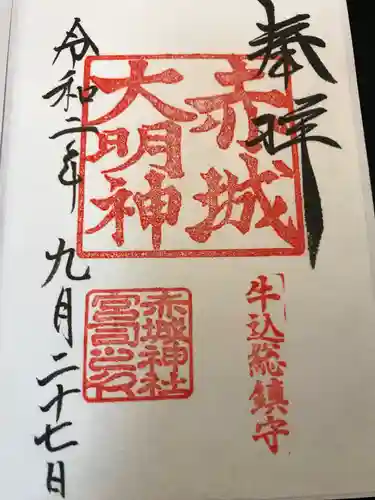 奉拝
赤城
大明神
牛込総鎮守
赤城神社
宮司之印
令和二年
九月二十七日